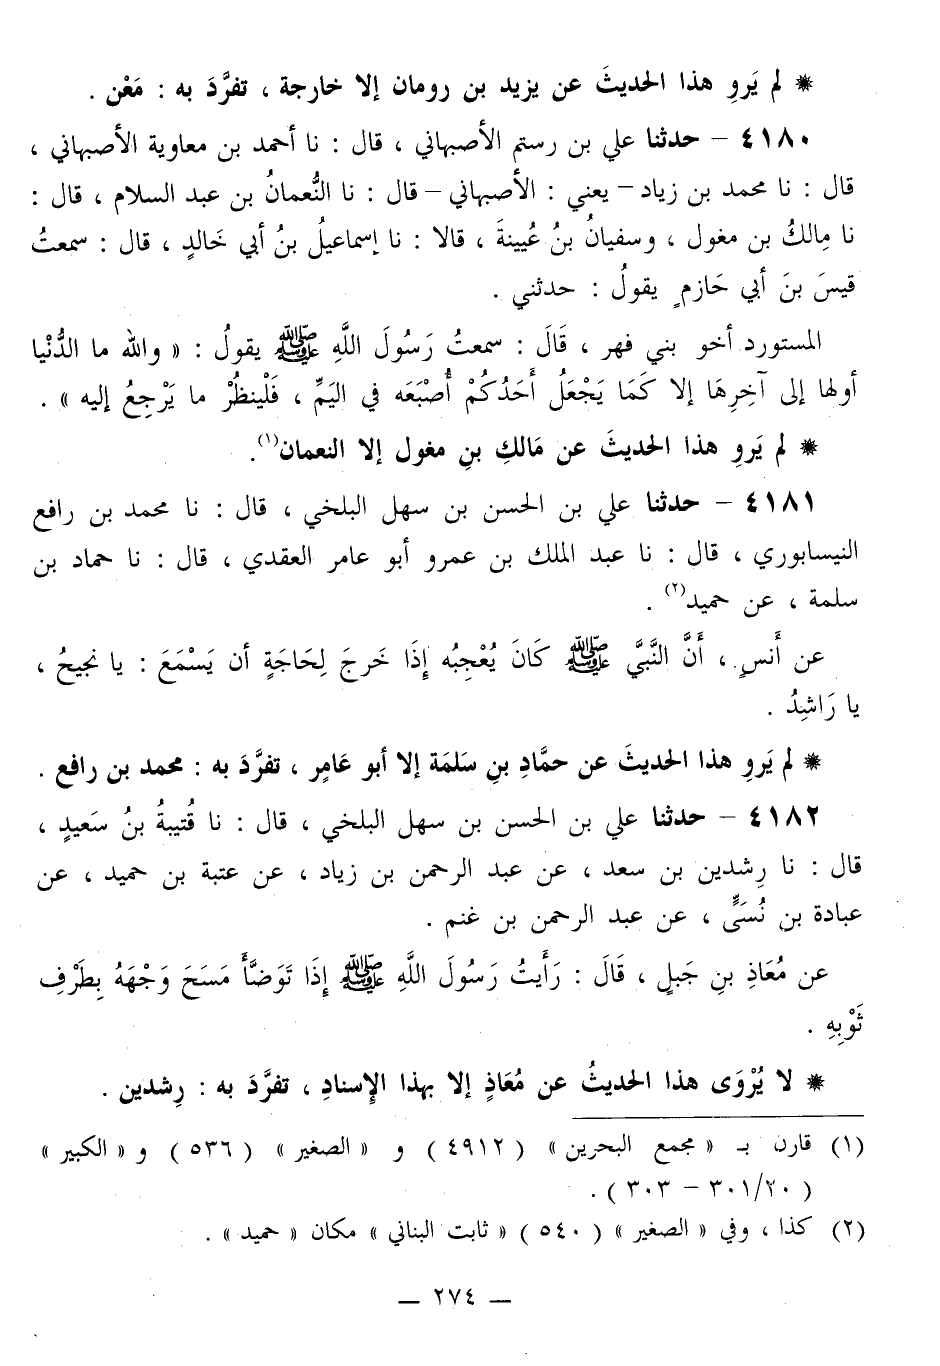 * لم يَروِ هذا الحديثَ عن يزيد بن رومان إلا خارجة ، تفرَّدَ به : مَعْن .
٤١٨٠ – حدثنا علي بن رستم الأصبهاني ، قال : نا أحمد بن معاوية الأصبهاني ،
قال : نا محمد بن زياد – يعني : الأصبهاني – قال : نا النُّعمانُ بن عبد السلام ، قال :
نا مِالكُ بن مغول ، وسفيانُ بنُ عُيينةَ ، قالا : نا إسماعيلُ بنُ أبي خَالدٍ ، قال : سمعتُ
قيسَ بنَ أبي حَازمٍ يقولُ : حدثني .
المستورد أخو بني فهر ، قَالَ : سمعتُ رَسُولَ اللَّهِ ﷺ يقولُ : « والله ما الدُّنْيا
أولها إلى آخِرِهَا إلا كَمَا يَجْعَلُ أَحَدُكُمْ أُصْبَعَه في اليَمِّ ، فَلْينظُرْ ما يَرْجِعُ إليه » .
* لم يَروِ هذا الحديثَ عن مَالكِ بنِ مغول إلا النعمان(١).
٤١٨١ – حدثنا علي بن الحسن بن سهل البلخي ، قال : نا محمد بن رافع
النيسابوري ، قال : نا عبد الملك بن عمرو أبو عامر العقدي ، قال : نا حماد بن
سلمة ، عن حميد(٢) .
عن أَنسٍ ، أَنَّ النَّبيَّ ﷺ كَانَ يُعْجِبُه إِذَا خَرجَ لِحَاجَةٍ أن يَسْمَعَ : يا نجيحُ ،
يا رَاشِدُ .
* لم يَروِ هذا الحديثَ عن حمَّادِ بنِ سَلمَة إلا أبو عَامٍر ، تفرَّدَ به : محمد بن رافع .
٤١٨٢ – حدثنا علي بن الحسن بن سهل البلخي ، قال : نا قُتيبةُ بنُ سَعيدٍ ،
قال : نا رِشدين بن سعد ، عن عبد الرحمن بن زياد ، عن عتبة بن حميد ، عن
عبادة بن نُسَيٍّ ، عن عبد الرحمن بن غنم .
عن مُعَاذِ بنِ جَبلٍ ، قَالَ : رَأَيتُ رَسُولَ اللَّهِ ﷺ إِذَا تَوَضَّأَ مَسَحَ وَجْهَهُ بِطَرْفِ
ثَوْبِهِ .
* لا يُرْوَى هذا الحديثُ عن مُعَاذٍ إلا بهذا الإسنادِ ، تفرَّدَ به : رِشدين .
(١) قارن بـ « مجمع البحرين » ( ٤٩١٢ ) و « الصغير » ( ٥٣٦ ) و « الكبير »
( ٢٠/ ٣٠١ – ٣٠٣ ) .
(٢) كذا ، وفي « الصغير » ( ٥٤٠ ) « ثابت البناني » مكان « حميد » .
— ٢٧٤ —